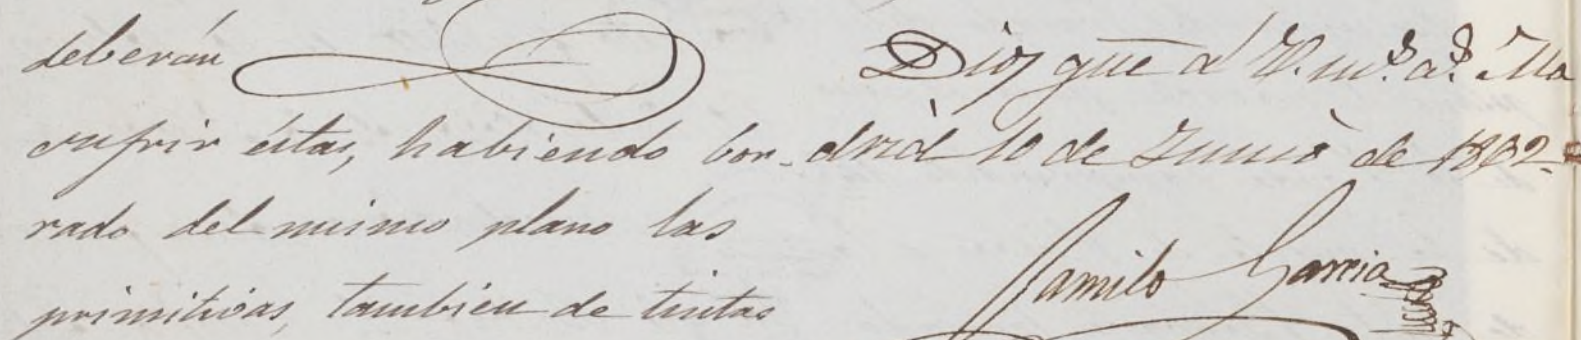 deberán
sufrir éstas, habiendo bor-
rado del mismo plano las
primitivas, tambien de tintas
Dios gue a V. ms. as. Ma
drid 10 de Junio de 1862.
Camilo Garcia